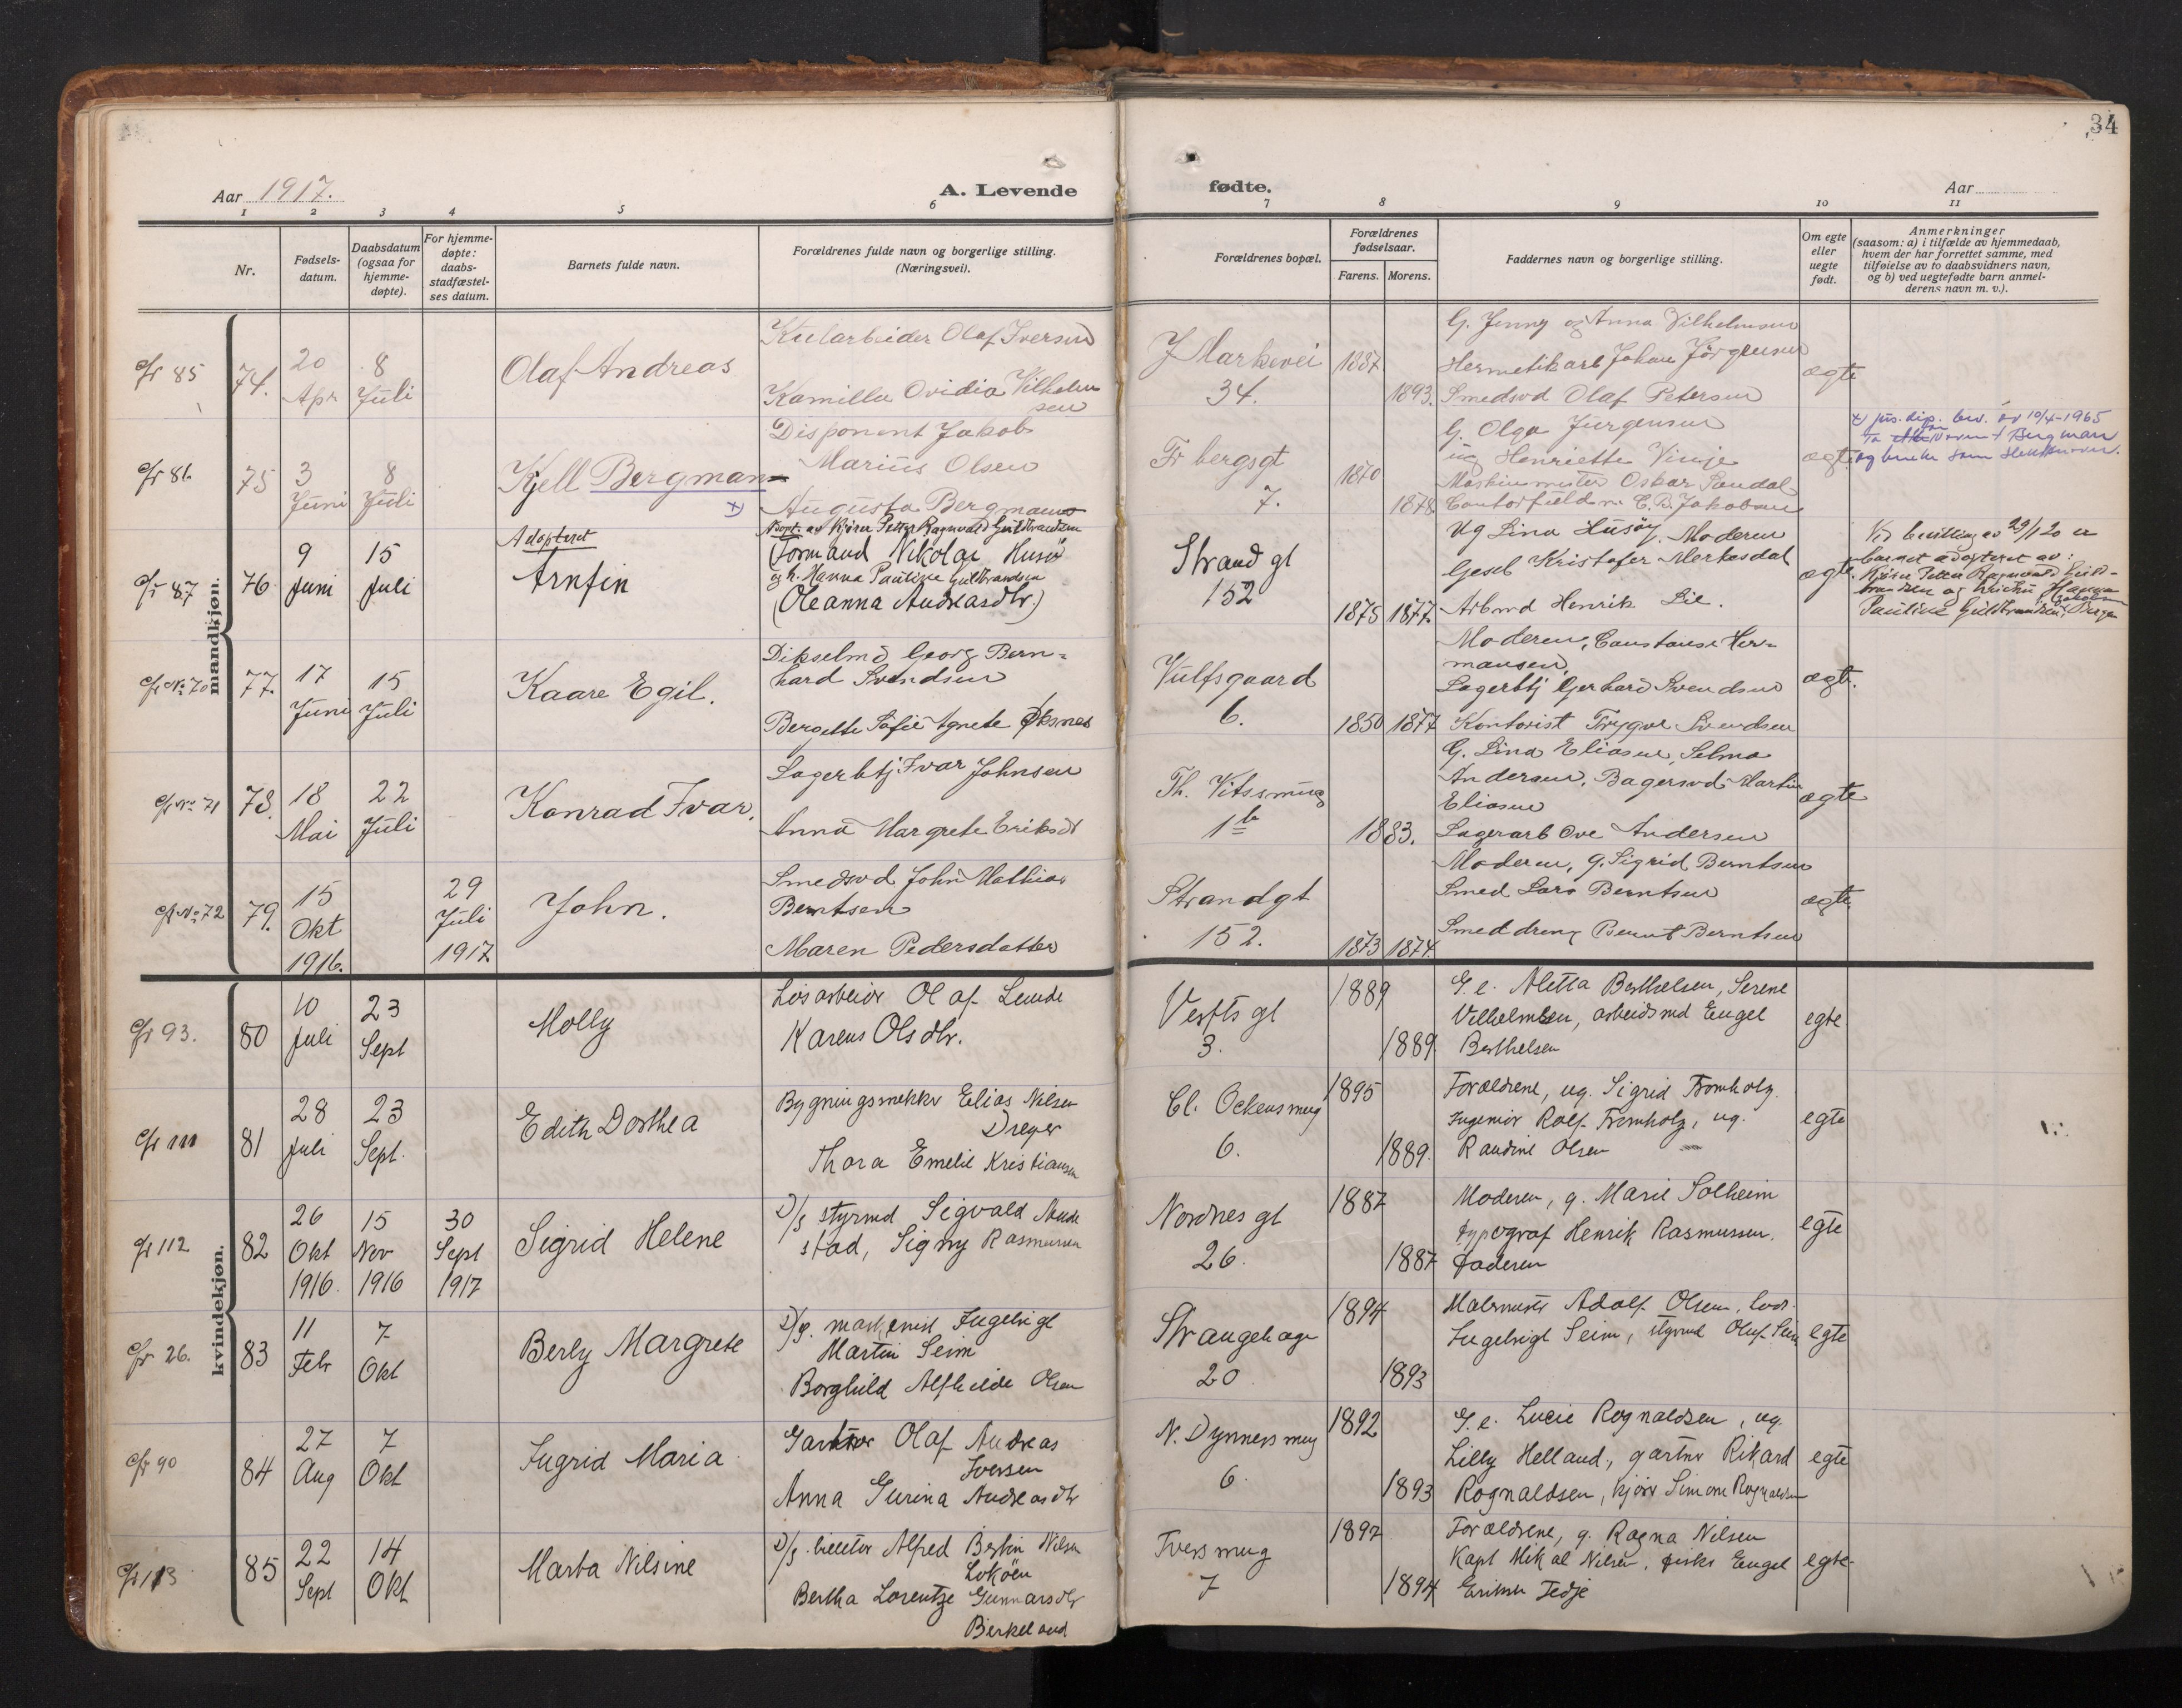 34
Aar 1917. A. Levende fødte. Aar
1 2 3 4 5 6 7 8 9 10 11
Nr.
Fødsels-datum.
Daabsdatum (ogsaa for hjemme-døpte).
For hjemme-døpte: daabs-stadfæstel-ses datum.
Barnets fulde navn.
Forældrenes fulde navn og borgerlige stilling. (Næringsvei).
Forældrenes bopæl.
Forældrenes fødselsaar.
Farens. Morens.
Faddernes navn og borgerlige stilling.
Om egte eller uegte født.
Anmerkninger
(saasom: a) i tilfælde av hjemmedaab,
hvem der har forrettet samme, med
tilføielse av to daabsvidners navn,
og b) ved uegtefødte barn anmel-
derens navn m. v.).
mandkjøn.
cfr 85 74. 20 Apr 8 Juli
Olaf Andreas
Kularbeider Olaf Iversen
Kamilla Ovidia Vilhelmsen
J Markevei 34.
1887 1893.
G. Jenny og Anna Vilhelmsen
Hermetikarb Johan Jörgensen
Smedsvd Olaf Petersen
egte
cfr 86 75 3 Juni 8 Juli
Kjell Bergmann x)
Disponent Jakob
Marius Olsen
Augusta Bergmann
Fr bergsgt 7.
1870 1878
G. Olga Jürgensen
ug Henriette Vinje
Maskinmester Oskar Sandal
Contorfuldm. C.B. Jakobsen
egte
x) jus. dip. bev. av 10/4-1965
og bruke som slektsnavn.
cfr 87 76 9 Juni 15 Juli
Adopteret
Arnfin
Adopt. av Kjörer Petter Ragnvald Guldbrandsen
(Formand Nikolai Husö
og h. Hanna Pauline Guldbrandsen
(Oleanna Andreasdtr.)
Strandgt 152
1875 1877.
Ug Lina Husöy, Moderen
Gesel Kristofer Merkesdal
Arbmd Henrik Lie.
egte.
Ved bevilling av 29/1 20 er
barnet adopteret av:
Kjörer Petter Ragnvald Guld-
brandsen og hustru Hanna
Pauline Guldbrandsen, Bergen
cfr No 70 77. 17 Juni 15 Juli
Kaare Egil.
Dikselmd Georg Bern-
hard Svendsen
Bergette Sofie Agnete Öksnes
Vulfsgaard 6.
1850 1877
Moderen, Constanse Her-
mansen,
Lagerbtj Gerhard Svendsen
Kontorist Trygve Svendsen
egte.
cfr No 71 78. 18 Mai 22 Juli
Konrad Ivar.
Lagerbtj Ivar Johnsen
Anna Margrete Eriksdt
Th. Vitssmug 1b
1883.
G. Lina Eliasen, Selma
Andersen, Bagersvd Martin
Eliasen
Lagerarb Ove Andersen
egte
cfr No 72 79. 15 Okt 1916. 29 Juli 1917
John.
Smedsvd John Mathias
Berntsen
Maren Pedersdatter
Strandgt 152.
1873 1874.
Moderen, g. Sigrid Berntsen
Smed Lars Berntsen
Smeddreng Bernt Berntsen
egte.
kvindekjøn.
cfr 93. 80 10 Juli 23 Sept
Molly
Løsarbeider Olaf Lunde
Karens Olsdtr.
Vestts gt 3.
1889 1889.
G. e. Aletta Berthelsen, Serene
Vilhelmsen, arbeidsmd Engel
Berthelsen
egte
cfr 111 81 28 Juli 23 Sept.
Edith Dorthea
Bygningsmekkr Elias Nilsen
Dreyer
Thora Emelie Kristiansen
Cl. Ockensmug 6.
1895 1889.
Forældrene, ug. Sigrid Fromholz.
Ingeniør Rolf Fromholz, ug.
Randine Olsen
egte
cfr 112 82 26 Okt 1916. 15 Nov 1916 30 Sept 1917
Sigrid Helene
D/s styrmd Sigvald
stad, Signy Rasmussen
Nordnesgt 26.
1887 1887
Moderen, g. Marie Solheim
typograf Henrik Rasmussen.
faderen
egte
cfr 26. 83 11 Febr 7 Okt
Berly Margrete
D/s. maskinist Ingelvigt
Martin Seim
Borghild Alfhilde Olsen
Strangehage 20
1894 1893
Malermester Adolf Olsen, lods.
Ingelvigt Seim, styrmd Oluf Seim
egte
cfr 90 84 27 Aug 7 Okt
Ingrid Maria
Gartner Olaf Andreas
Iversen
Anna Gurina Andreasdtr
N. Dynnersmug 6.
1892 1893
G. e. Lucie Rognaldsen, ug.
Lilly Helland, gartner Rikard
Rognaldsen, kjörer Simon Rognaldsen
egte
cfr 113 85 22 Sept 14 Okt
Marta Nilsine
D/s. Alfred Bertin Nilsen
Loköen
Bertha Lorentze Gunnarsdtr
Birkeland
Tversmug 7
1897 1894
Forældrene, g. Ragna Nilsen
Kapt Mikal Nilsen, fisker Engel
Eriksen Tedje
egte